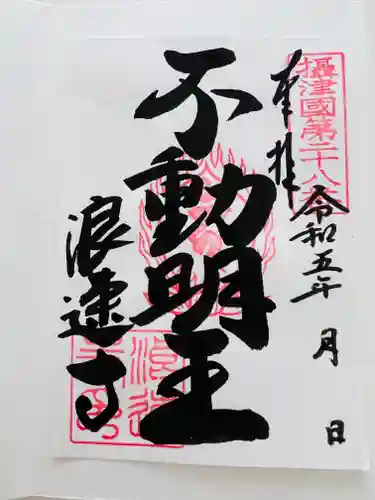 摂津國第二十八番
奉拝
令和五年 月 日
不動明王
浪速寺